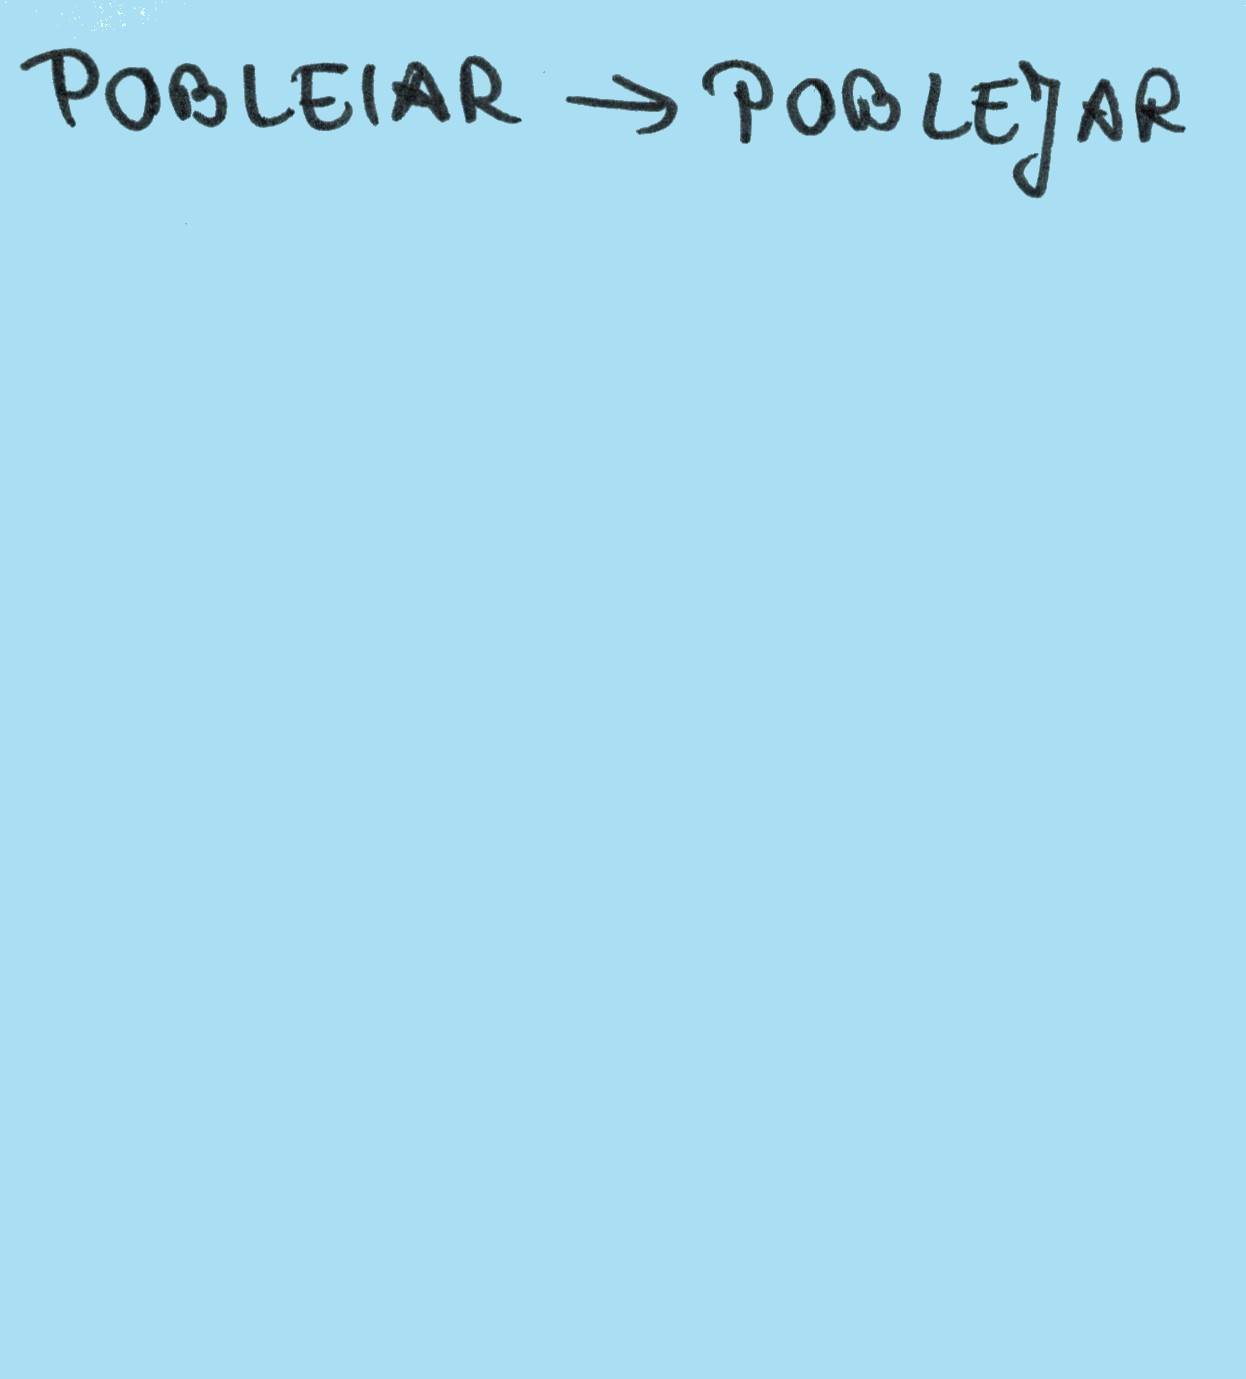 POBLEIAR → POBLEJAR